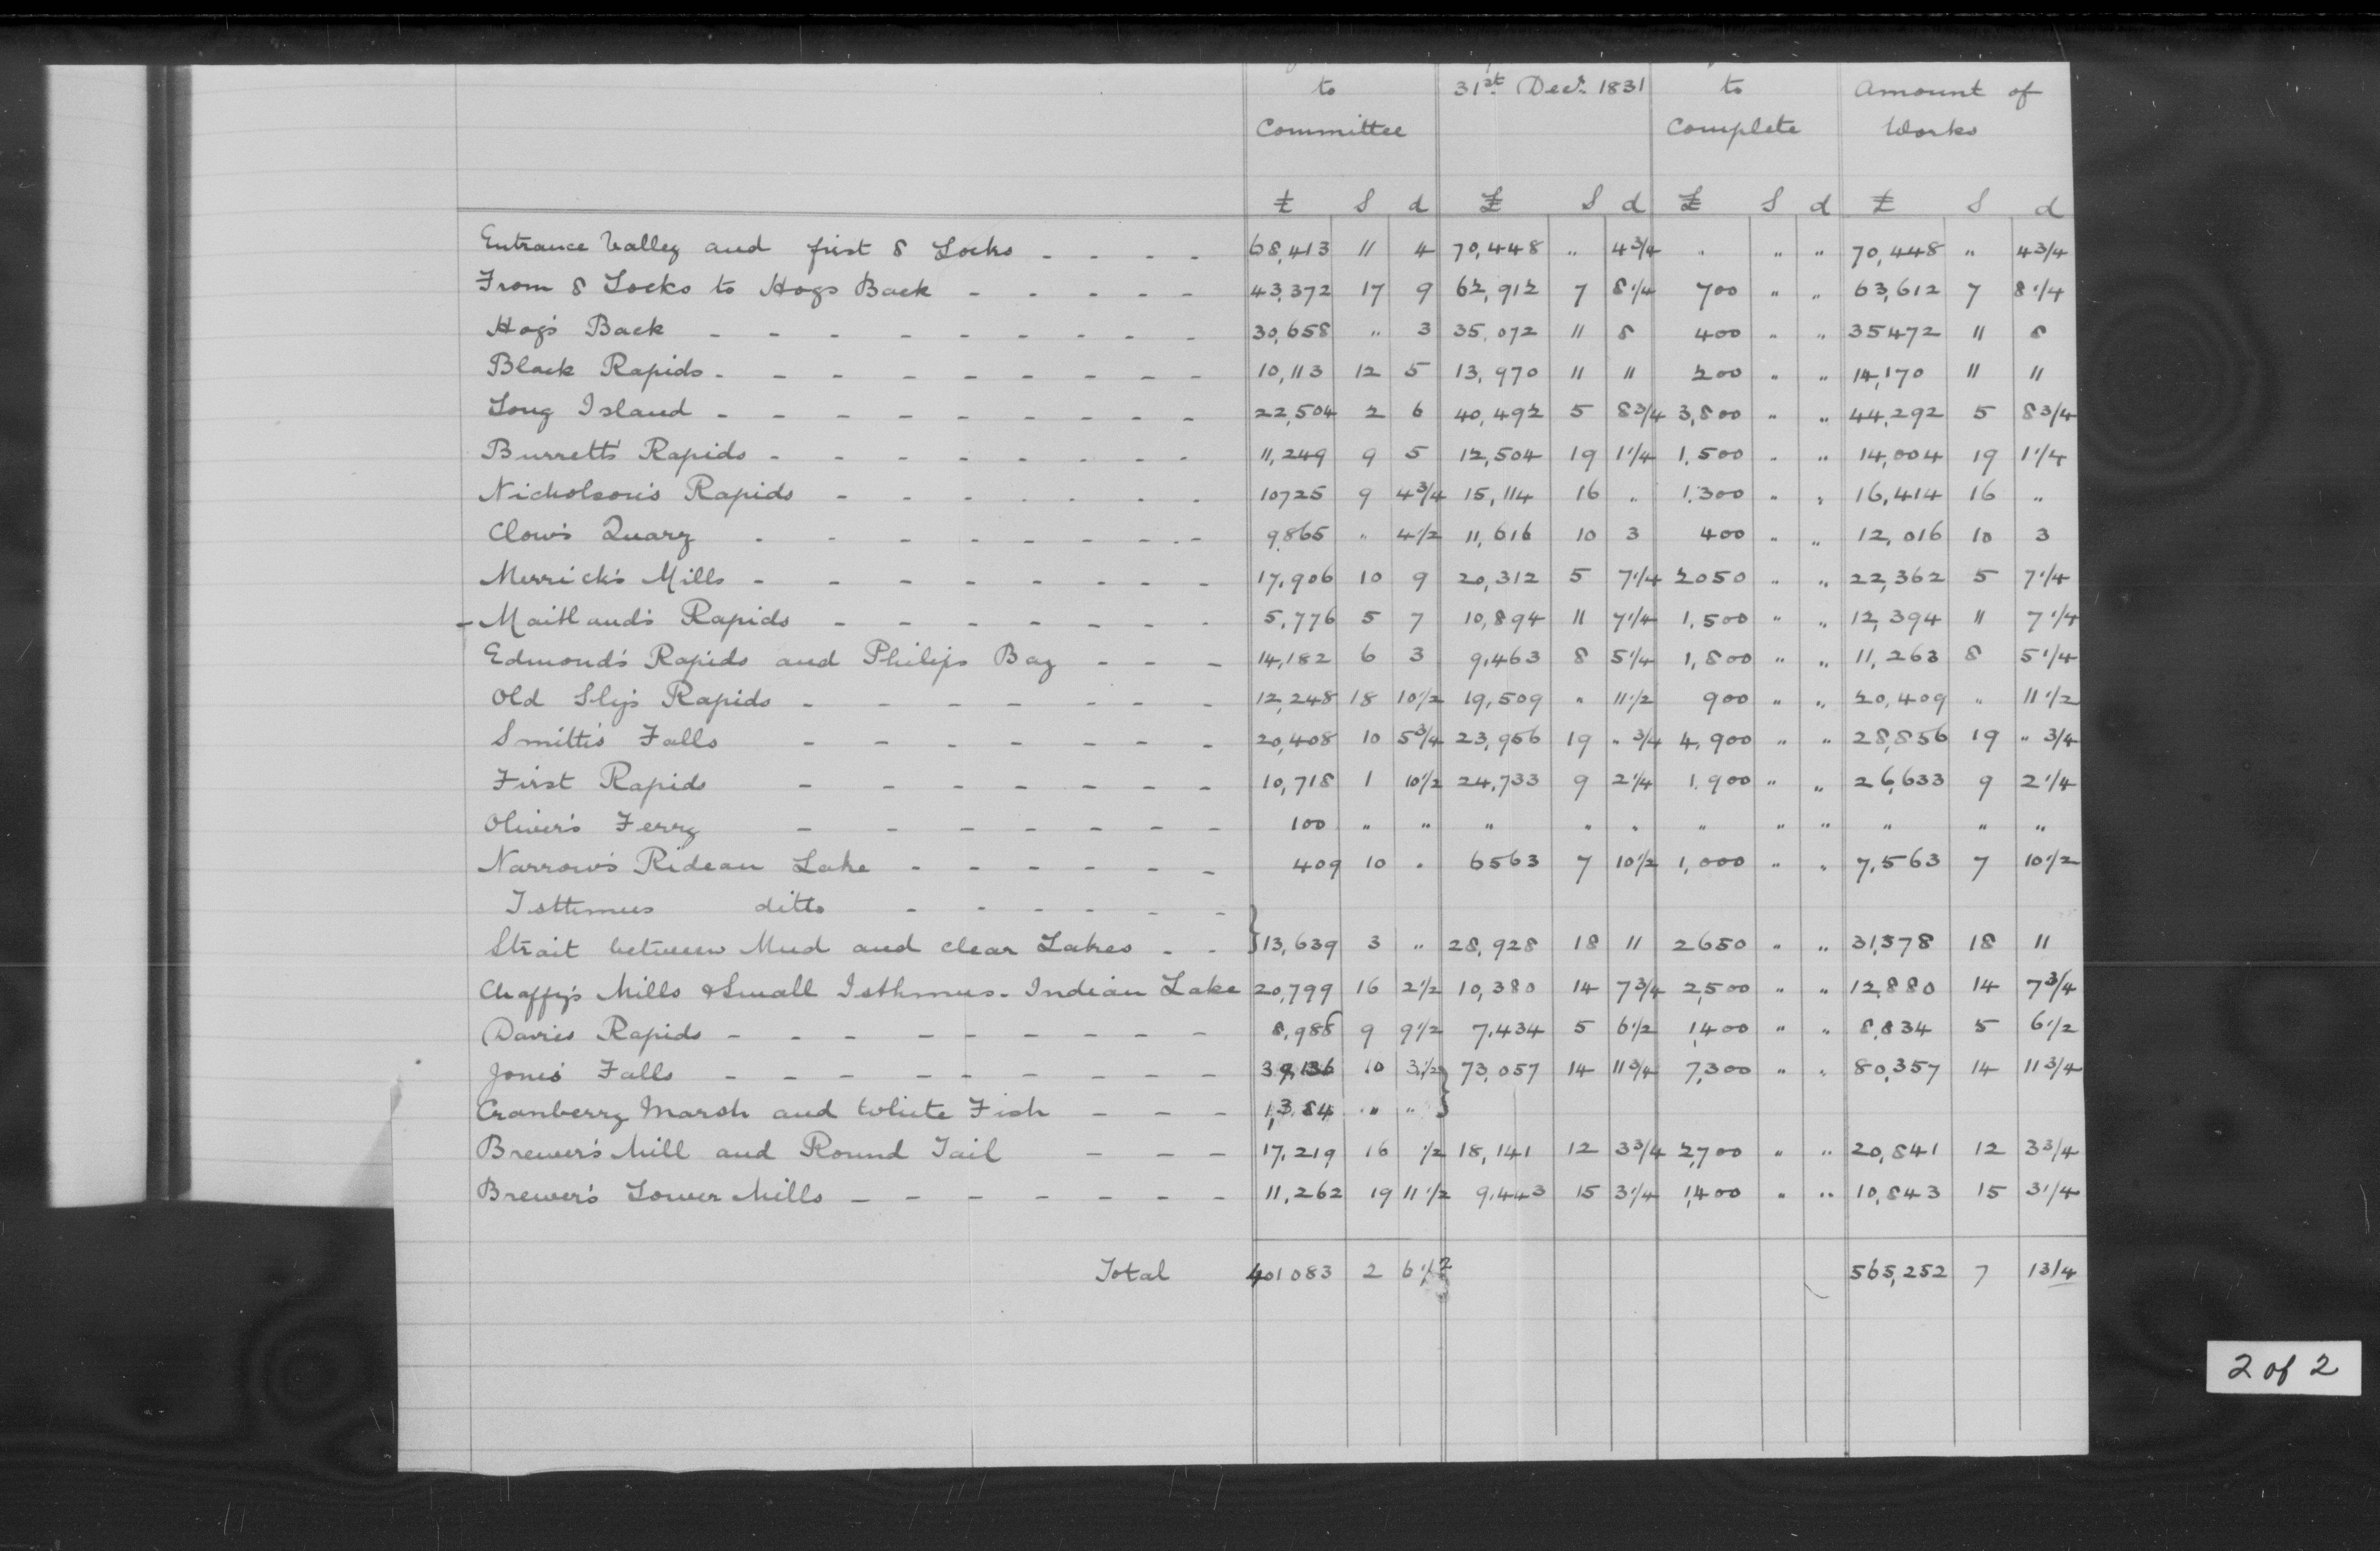 to 31st Decr. 1831 to Amount of
Committee Complete Works
£ S d £ S d £ S d £ S d
Entrance Valley and first 8 Locks - - - - 68,413 11 4 70,448 " 4 3/4 " " " 70,448 " 4 3/4
From 8 Locks to Hogs Back - - - - - 43,372 17 9 62,912 7 8 1/4 700 " " 63,612 7 8 1/4
Hog's Back - - - - - - - - 30,658 " 3 35,072 11 8 400 " " 35472 11 8
Black Rapids - - - - - - - - 10,113 12 5 13,970 11 11 200 " " 14,170 11 11
Long Island - - - - - - - - 22,504 2 6 40,492 5 8 3/4 3,800 " " 44,292 5 8 3/4
Burrett's Rapids - - - - - - - 11,249 9 5 12,504 19 1 1/4 1,500 " " 14,004 19 1 1/4
Nicholson's Rapids - - - - - - 10725 9 4 3/4 15,114 16 " 1,300 " " 16,414 16 "
Clow's Quarry - - - - - - - - 9,865 " 4 1/2 11,616 10 3 400 " " 12,016 10 3
Merrick's Mills - - - - - - - - 17,906 10 9 20,312 5 7 1/4 2050 " " 22,362 5 7 1/4
- Maitland's Rapids - - - - - - 5,776 5 7 10,894 11 7 1/4 1,500 " " 12,394 11 7 1/4
Edmond's Rapids and Philips Bay - - - 14,182 6 3 9,463 8 5 1/4 1,800 " " 11,263 8 5 1/4
Old Slys Rapids - - - - - - - 12,248 18 10 1/2 19,509 " 11 1/2 900 " " 20,409 " 11 1/2
Smith's Falls - - - - - - - 20,408 10 5 3/4 23,956 19 " 3/4 4,900 " " 28,856 19 " 3/4
First Rapids - - - - - - - 10,718 1 10 1/2 24,733 9 2 1/4 1,900 " " 26,633 9 2 1/4
Oliver's Ferry - - - - - - - 100 " " " " " " " " " " "
Narrow's Rideau Lake - - - - - - 409 10 " 6563 7 10 1/2 1,000 " " 7,563 7 10 1/2
Isthmus ditto - - - - - -
Strait between Mud and clear Lakes - - } 13,639 3 " 28,928 18 11 2650 " " 31,578 18 11
Chaffy's Mills & Small Isthmus - Indian Lake 20,799 16 2 1/2 10,380 14 7 3/4 2,500 " " 12,880 14 7 3/4
Davies Rapids - - - - - - - - 8,988 9 9 1/2 7,434 5 6 1/2 1,400 " " 8,834 5 6 1/2
Jones' Falls - - - - - - - - 39,136 10 3 1/2 } 73,057 14 11 3/4 7,300 " " 80,357 14 11 3/4
Cranberry Marsh and White Fish - - - 1,384 " "
Brewer's Mill and Round Tail - - - 17,219 16 1/2 18,141 12 3 3/4 2,700 " " 20,841 12 3 3/4
Brewer's Lower Mills - - - - - - - 11,262 19 11 1/2 9,443 15 3 1/4 1,400 " " 10,843 15 3 1/4
Total 401083 2 6 1/2 565,252 7 1 3/4
2 of 2